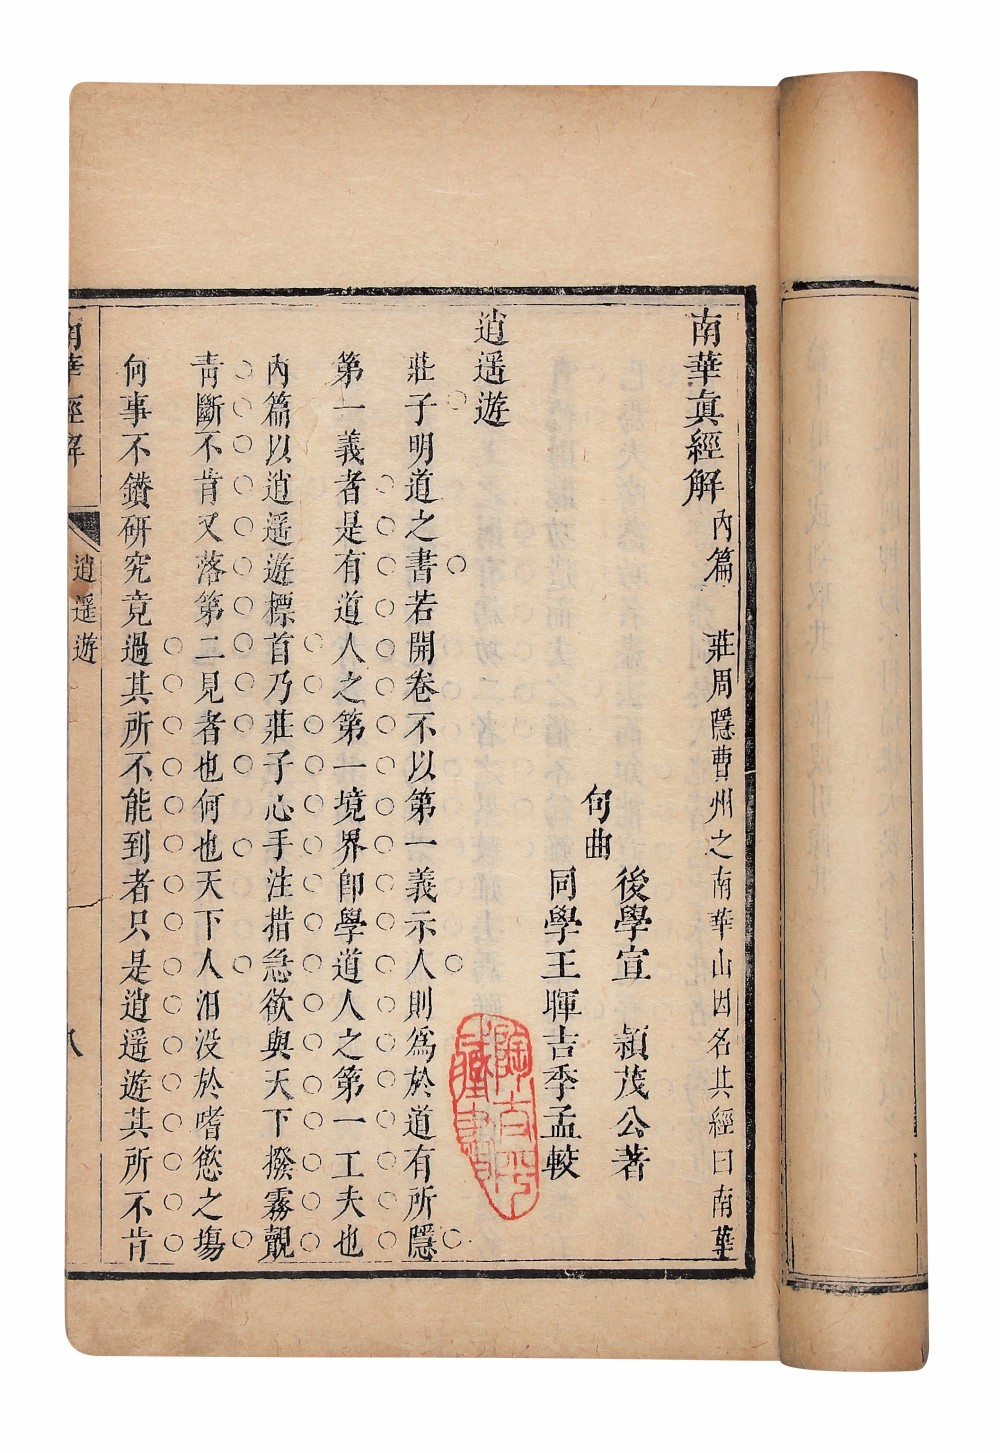 南華真經解內篇 莊周隱曹州之南華山因名其經曰南華
句曲 後學宣 穎茂公著
同學王暉吉季孟較
逍遙遊
莊子明道之書若開卷不以第一義示人則為於道有所隱
第一義者是有道人之第一境界卽學道人之第一工夫也
內篇以逍遙遊標首乃莊子心手注措急欲與天下撥霧覩
青斷不肯又落第二見者也何也天下人汨没於嗜慾之塲
何事不鑽研究竟過其所不能到者只是逍遙遊其所不肯
南華經解 逍遙遊 八